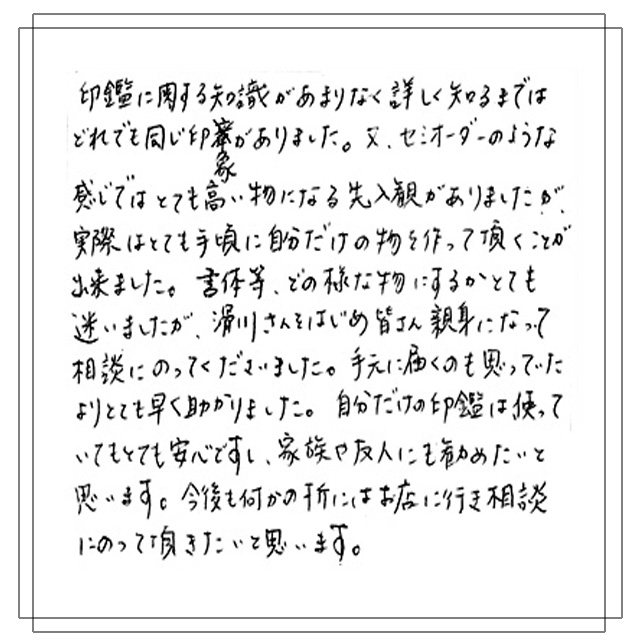 印鑑に関する知識があまりなく詳しく知るまでは
どれでも同じ印象がありました。又、セミオーダーのような
感じではとても高い物になる先入観がありましたが、
実際はとても手頃に自分だけの物を作って頂くことが
出来ました。書体等、どの様な物にするかとても
迷いましたが、滑川さんをはじめ皆さん親身になって
相談にのってくださいました。手元に届くのも思っていた
よりとても早く助かりました。自分だけの印鑑は使って
いてもとても安心ですし、家族や友人にも勧めたいと
思います。今後も何かの折にはお店に行き相談
にのって頂きたいと思います。